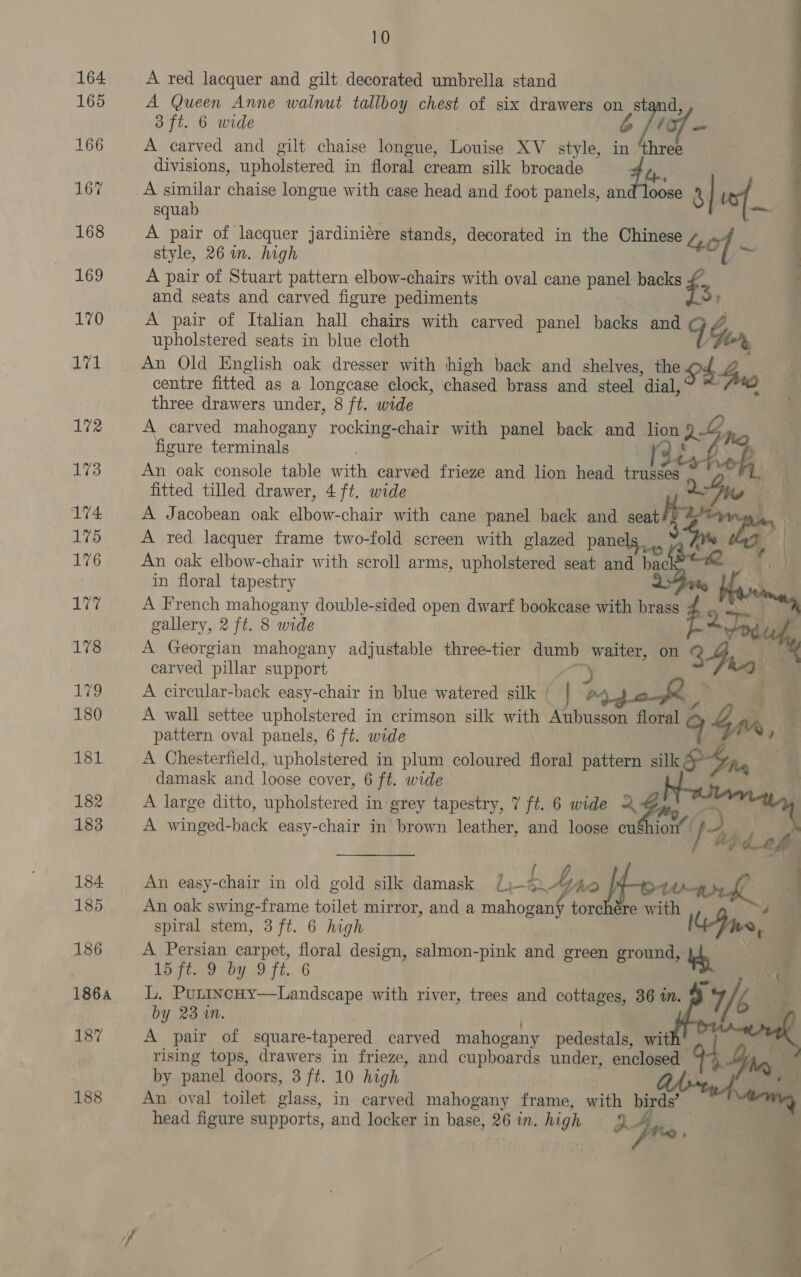 10
164 A red lacquer and gilt decorated umbrella stand
165 A Queen Anne walnut tallboy chest of six drawers on stand,
3 ft. 6 wide
166 A carved and gilt chaise longue, Louise XV style, in three
divisions, upholstered in floral cream silk brocade
167 A similar chaise longue with case head and foot panels, and loose
squab
168 A pair of lacquer jardinière stands, decorated in the Chinese
style, 26 in. high
169 A pair of Stuart pattern elbow-chairs with oval cane panel backs
and seats and carved figure pediments
170 A pair of Italian hall chairs with carved panel backs and
upholstered seats in blue cloth
171 An Old English oak dresser with high back and shelves, the
centre fitted as a longcase clock, chased brass and steel dial,
three drawers under, 8 ft. wide
172 A carved mahogany rocking-chair with panel back and lion
figure terminals
173 An oak console table with carved frieze and lion head trusses
fitted tilled drawer, 4 ft. wide
174 A Jacobean oak elbow-chair with cane panel back and seat
175 A red lacquer frame two-fold screen with glazed panels
176 An oak elbow-chair with scroll arms, upholstered seat and back
in floral tapestry
177 A French mahogany double-sided open dwarf bookcase with brass
gallery, 2 ft. 8 wide
178 A Georgian mahogany adjustable three-tier dumb waiter, on
carved pillar support
179 A circular-back easy-chair in blue watered silk
180 A wall settee upholstered in crimson silk with Aubusson floral
pattern oval panels, 6 ft. wide
181 A Chesterfield, upholstered in plum coloured floral pattern silk
damask and loose cover, 6 ft. wide
182 A large ditto, upholstered in grey tapestry, 7 ft. 6 wide
183 A winged-back easy-chair in brown leather, and loose cushion
184 An easy-chair in old gold silk damask
185 An oak swing-frame toilet mirror, and a mahogany torchère with
spiral stem, 3 ft. 6 high
186 A Persian carpet, floral design, salmon-pink and green ground,
15 ft. 9 by 9 ft. 6
186A L. PULINCHY—Landscape with river, trees and cottages, 36 in.
by 23 in.
187 A pair of square-tapered carved mahogany pedestals, with
rising tops, drawers in frieze, and cupboards under, enclosed
by panel doors, 3 ft. 10 high
188 An oval toilet glass, in carved mahogany frame, with birds'
head figure supports, and locker in base, 26 in. high